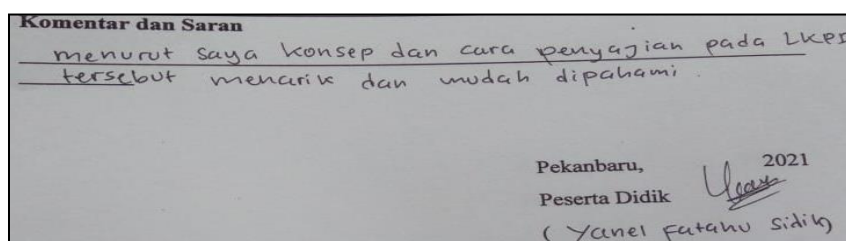 Komentar dan Saran
menurut saya konsep dan cara penyajian pada LKPD
tersebut menarik dan mudah dipahami.
Pekanbaru, 2021
Peserta Didik
(Yanel Fatahu Sidik)